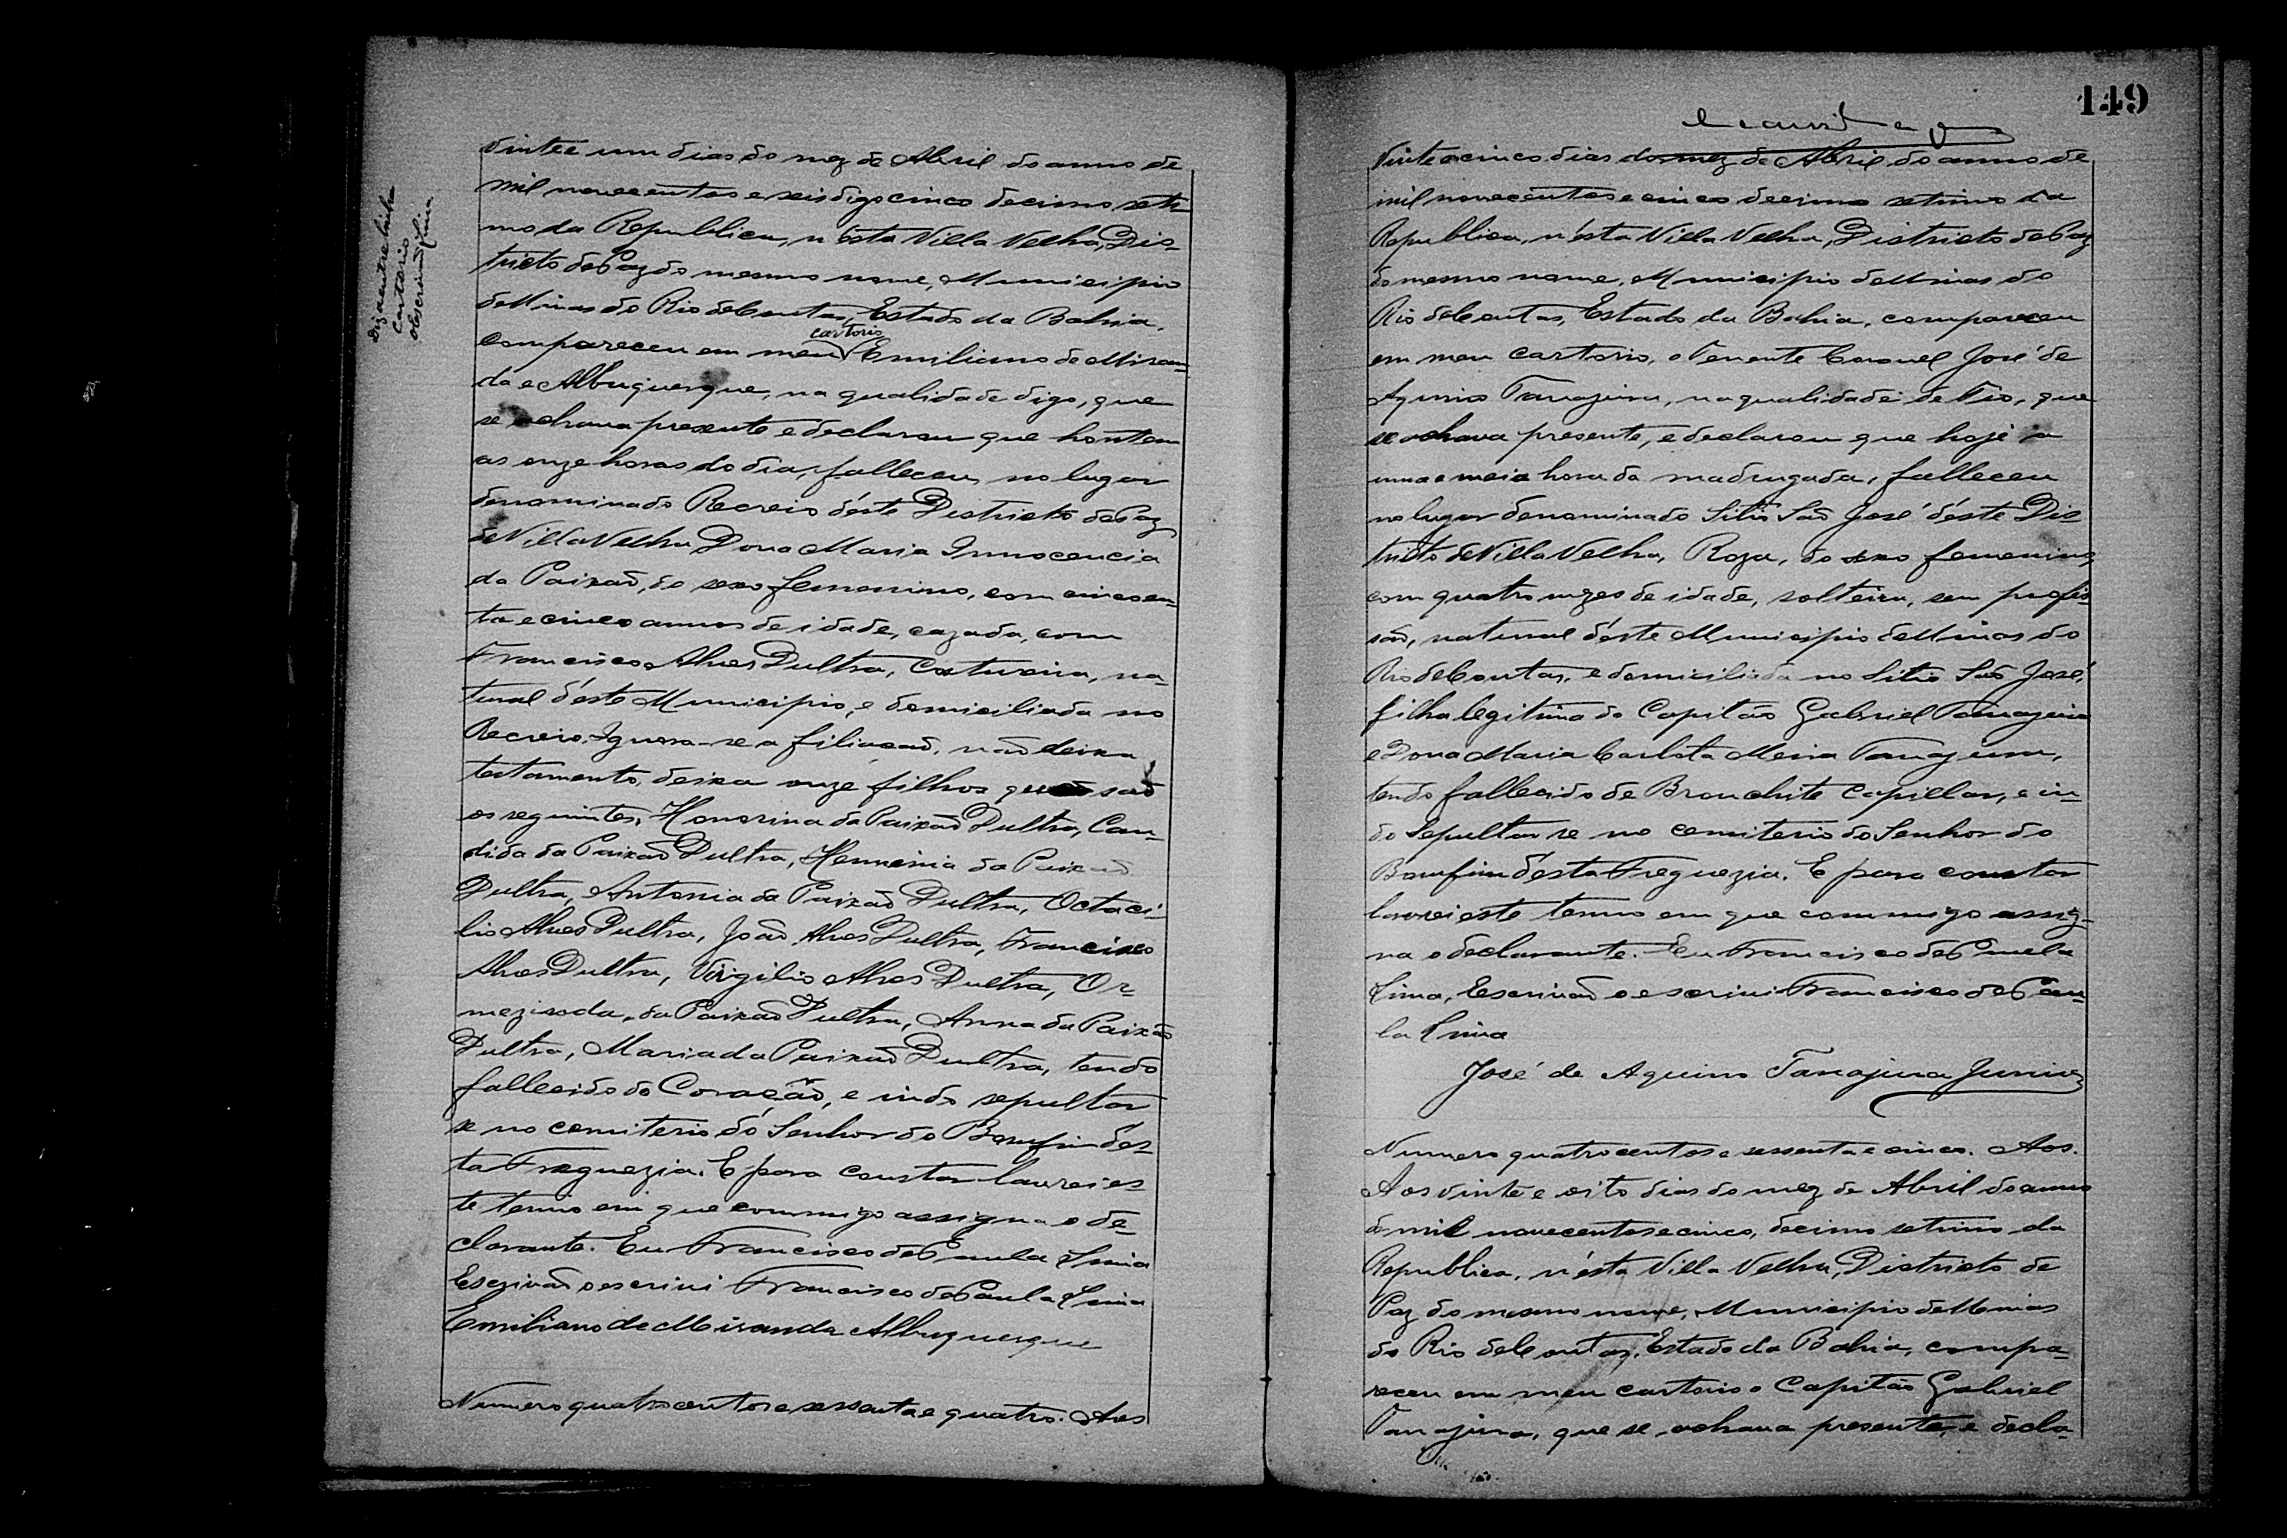 Digo entre linha
Cartorio
O Escrivão Lima
vinte e um dias do mez de Abril do anno de
mil novecentos e seis digo cinco decimo seti-
mo da Republica, n'ésta Villa Velha, Dis-
tricto de Paz do mesmo nome, Municipio
de Minas do Rio de Contas, Estado da Bahia,
compareceu em meu cartorio Emiliano de Miran-
da e Albuquerque, na qualidade digo, que
se achava presente e declarou que hontem
as onze horas do dia, falleceu, no lugar
denominado Recreio d'éste Districto de Paz
de Villa Velha Dona Maria Innocencia
da Paixão, do sexo femenino, com cincoen-
ta e cinco annos de idade, cazada, com
Francisco Alves Dultra, Costureira, na-
tural d'éste Municipio, e domiciliada no
Recreio. Ignora-se a filiacão, não deixa
testamento, deixa onze filhos que são
os seguintes, Honorina da Paixão Dultra, Can-
dida da Paixão Dultra, Herminia da Paixão
Dultra, Antonia da Paixão Dultra, Octaci-
lio Alves Dultra, João Alves Dultra, Francisco
Alves Dultra, Virgilio Alves Dultra, Or-
mezinda da Paixão Dultra, Anna da Paixão
Dultra, Maria da Paixão Dultra, tendo
fallecido do Coração, e indo sepultar
se no cemiterio do Senhor do Bomfim d'es-
ta Freguezia. E para constar lavrei es-
te termo em que commigo assigna o de-
clarante. Eu Francisco de Paula Lima
Escrivão o escrivi Francisco de Paula Lima
Emiliano de Miranda Albuquerque
Numero quatro centos e sessenta e quatro. Aos
149
vinte e cinco dias do mez de Abril do anno de
mil novecentos e cinco decimo setimo da
Republica, n'ésta Villa Velha, Districto de Paz
do mesmo nome, Municipio de Minas do
Rio de Contas, Estado da Bahia, compareceu
em meu cartorio, o Tenente Coronel José de
Aquino Tanajura, na qualidade de Tio, que
se achava presente, e declarou que hoje a
uma e meia hora da madrugada, falleceu
no lugar denominado Sitio São José d'éste Dis-
tricto de Villa Velha, Roza, do sexo femenino,
com quatro mezes de idade, solteira, sem profis-
são, natural d'éste Municipio de Minas do
Rio de Contas, e domiciliada no Sitio São José,
filha legitima do Capitão Gabriel Tanajura
e Dona Maria Carlota Meira Tanajura,
tendo fallecido de Bronchite Capillar, e in-
do Sepultar se no cemiterio do Senhor do
Bomfim d'ésta Freguezia. E para constar
lavrei este termo em que commigo assig-
na o declarante. Eu Francisco de Paula
Lima, Escrivão o escrivi Francisco de Pau-
la Lima
José de Aquino Tanajura Junior
Numero quatro centos e sessenta e cinco. Aos.
Aos vinte e oito dias do mez de Abril do anno
de mil novecentos e cinco, decimo setimo da
Republica, n'ésta Villa Velha, Districto de
Paz do mesmo nome, Municipio de Minas
do Rio de Contas, Estado da Bahia, compa-
receu em meu cartorio o Capitão Gabriel
Tanajura, que se achava presente, e decla-